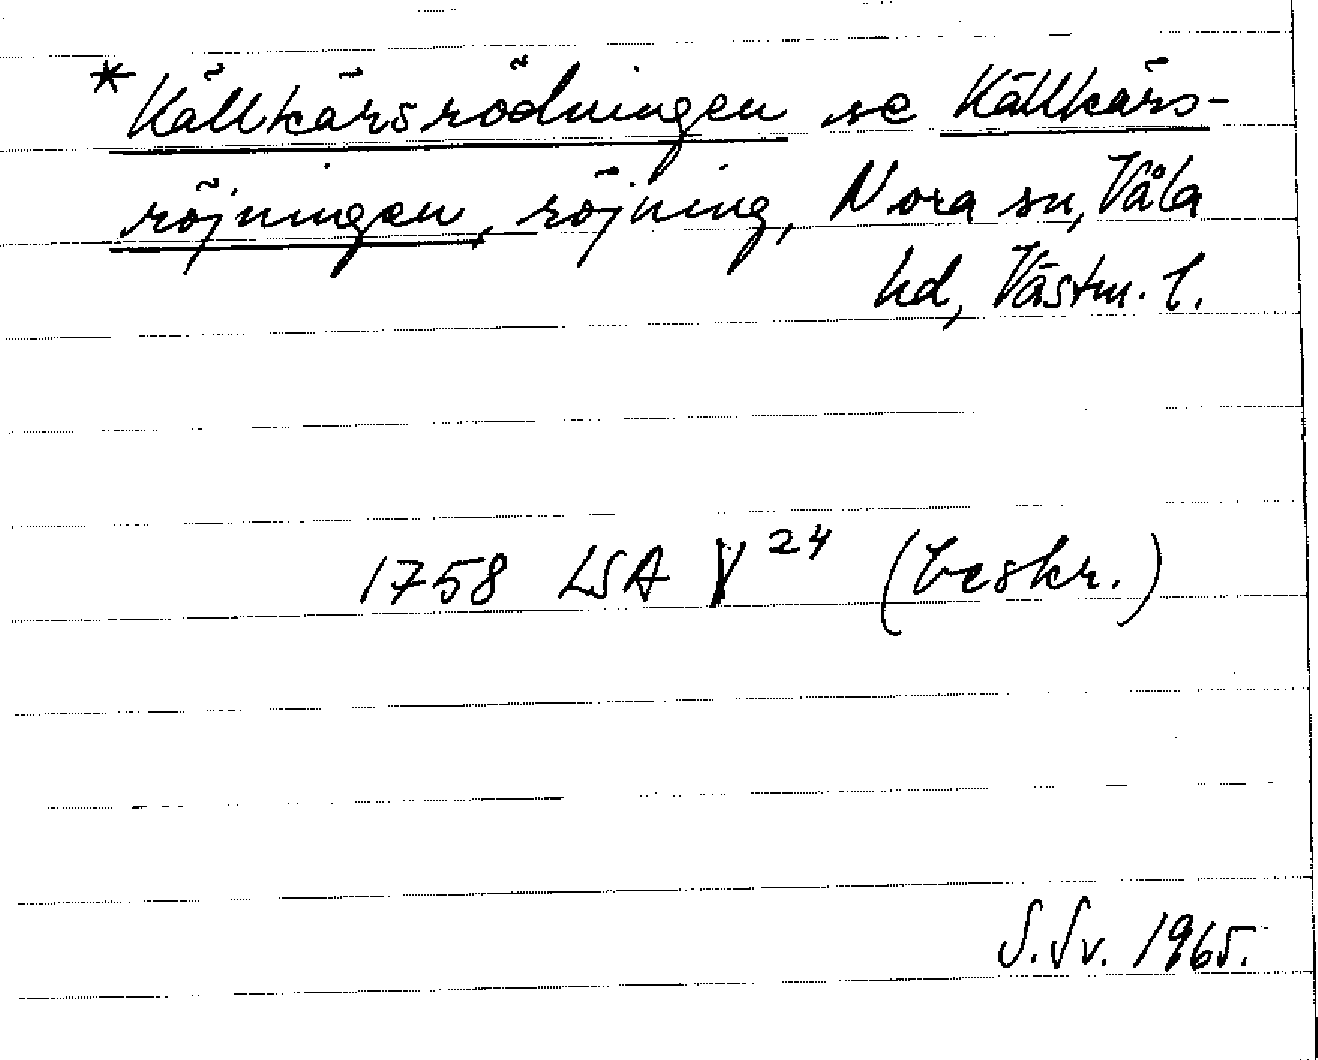 *Källkärsrödningen se Källkärs-
röjningen, röjning, Nora sn, Våla
hd, Västm. l.
1758 LSA V 24 (beskr.)
S. Sv. 1965.